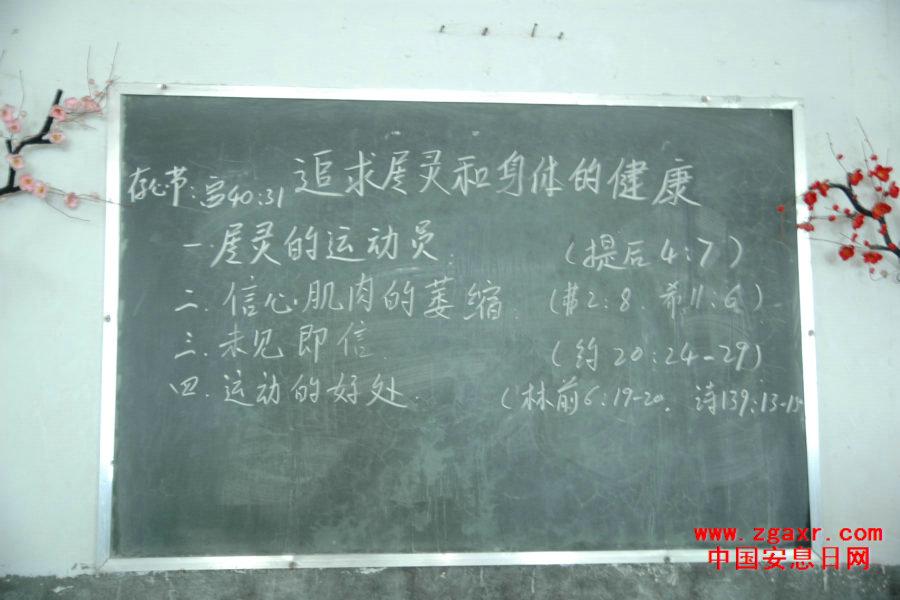 存心节:宫40:31 追求居灵和身体的健康
一.居灵的运动员. (提后4:7)
二.信心肌肉的萎缩. (弗2:8. 希11:6.)
三.未见即信. (约20:24-29)
四.运动的好处. (林前6:19-20. 诗139:13-15
www.zgaxr.com
中国安息日网